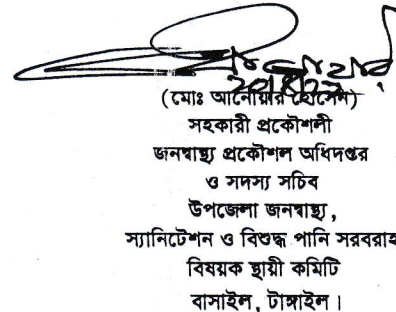 (মোঃ আনোয়ার হোসেন)
সহকারী প্রকৌশলী
জনস্বাস্থ্য প্রকৌশল অধিদপ্তর
ও সদস্য সচিব
উপজেলা জনস্বাস্থ্য,
স্যানিটেশন ও বিশুদ্ধ পানি সরবরাহ
বিষয়ক স্থায়ী কমিটি
বাসাইল, টাঙ্গাইল।